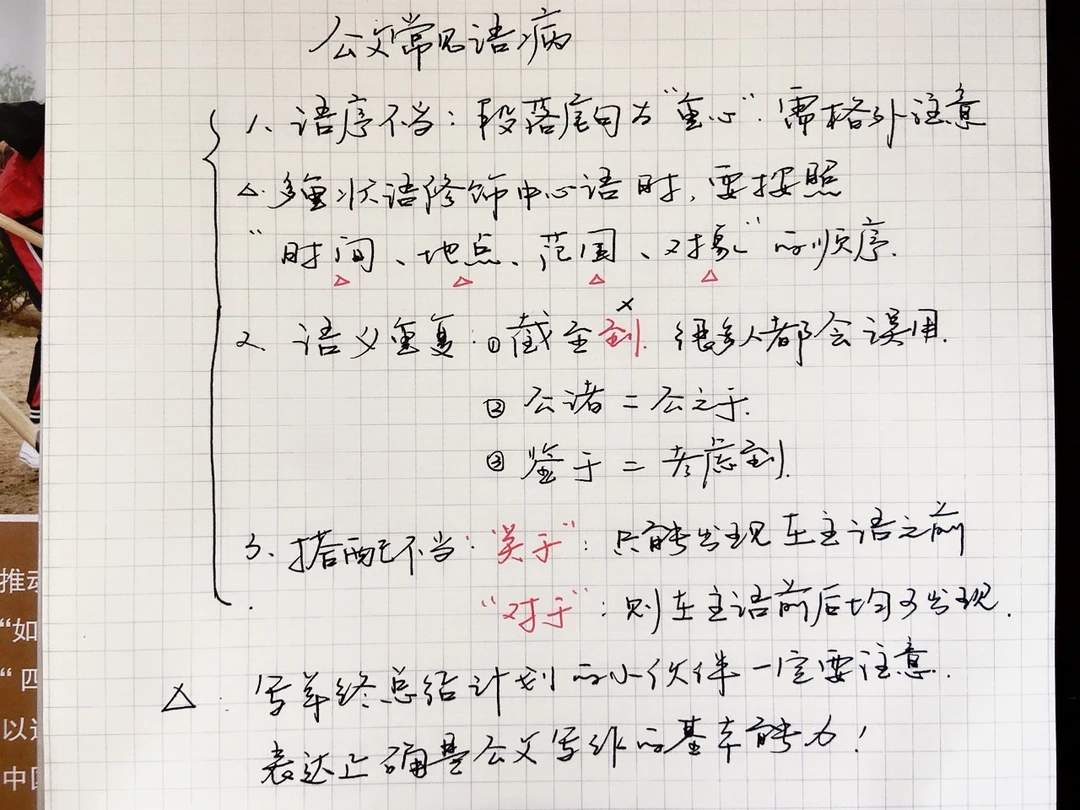 公文常见语病
1、语序不当：段落尾句为“重心”.需格外注意
△.多重状语修饰中心语时，要按照
“时间、地点、范围、对象”的顺序.
2、语义重复：①截至到.很多人都会误用.
×
② 公诸＝公之于.
③ 鉴于＝考虑到.
3、搭配不当：“关于”：只能出现在主语之前
“对于”：则在主语前后均可出现.
△：写年终总结计划的小伙伴一定要注意.
表达正确是公文写作的基本能力！
推动
“如
“四
以
中